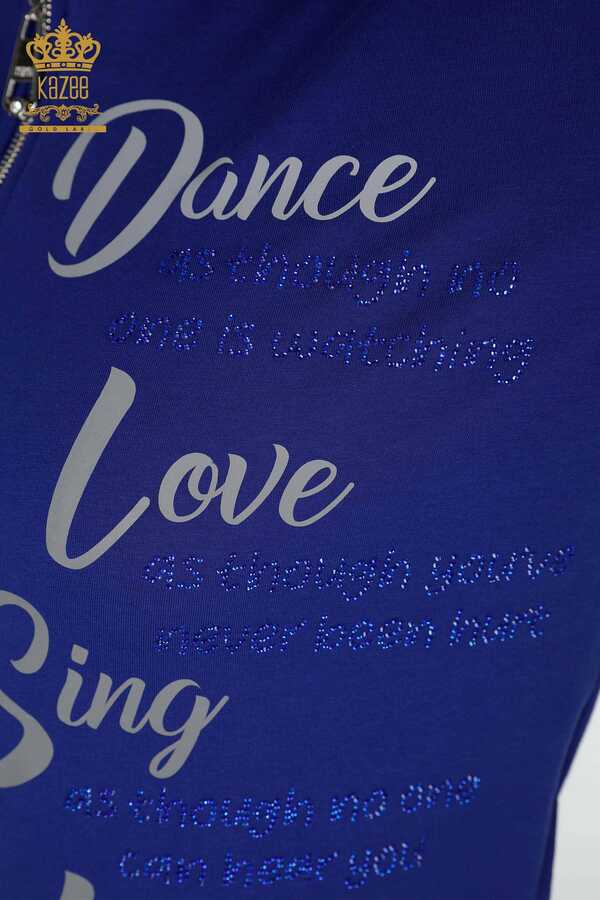 Kazee
GOLD LABEL
Dance
as though no
one is watching
Love
as though youve
never been hurt
Sing
as though no one
can hear you